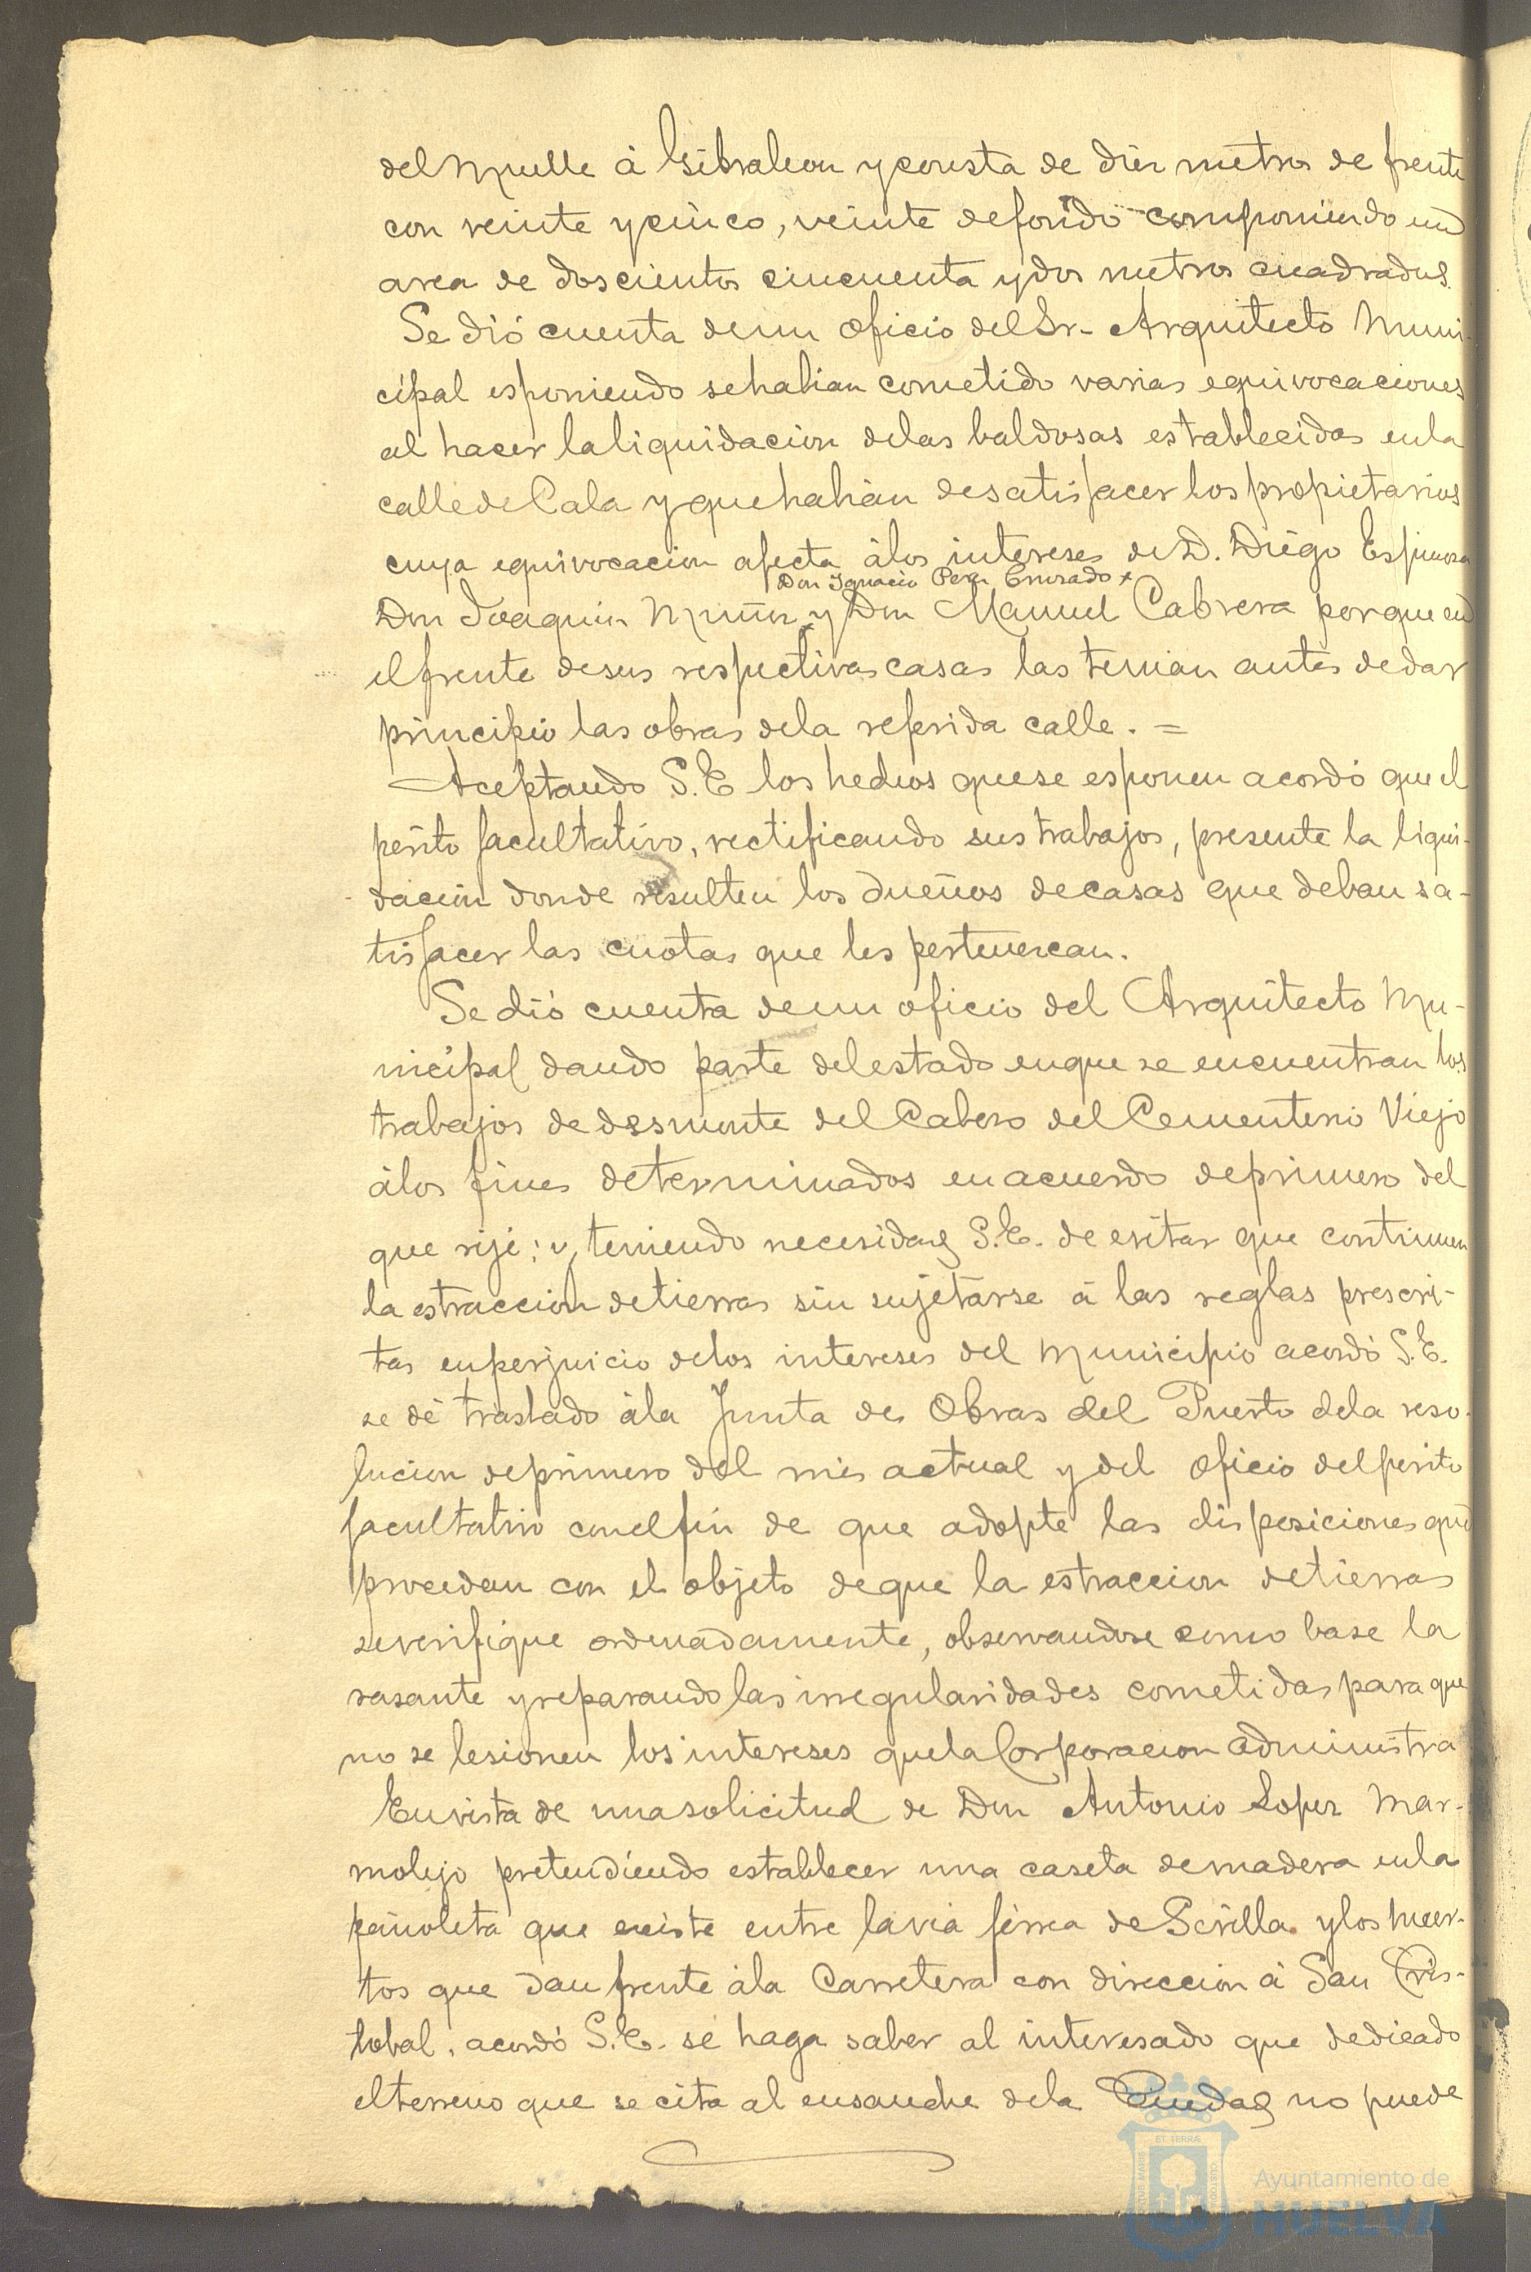 del Muelle á Gibraleon y consta de diez metros de frente
con veinte y cinco, veinte de fondo componiendo un
area de doscientos cincuenta y dos metros cuadrados.
Se dió cuenta de un oficio del Sr. Arquitecto Muni-
cipal esponiendo se habian cometido varias equivocaciones
al hacer la liquidacion de las baldosas establecidas en la
calle de Cala y que habian de satisfacer los propietarios
cuya equivocacion afecta á los intereses de D. Diego Espinosa
Don Ignacio
Don Joaquin Muñoz y Don Manuel Cabrera porque en
el frente de sus respectivas casas las tenian antes de dar
principio las obras de la referida calle. =
Aceptando S.E los hechos que se esponen acordó que el
perito facultativo, rectificando sus trabajos, presente la liqui-
dacion donde resulten los dueños de casas que deban sa-
tisfacer las cuotas que les pertenezcan.
Se dió cuenta de un oficio del Arquitecto Mu-
nicipal dando parte del estado en que se encuentran los
trabajos de desmonte del Cabezo del Cementerio Viejo
á los fines determinados en acuerdo de primero del
que rije; y, teniendo necesidad S.E. de evitar que continuen
la estraccion de tierras sin sujetarse á las reglas prescri-
tas en perjuicio de los intereses del Municipio acordó S.E.
se dé traslado á la Junta de Obras del Puerto de la reso-
lucion de primero del mes actual y del oficio del perito
facultativo con el fin de que adopte las disposiciones que
procedan con el objeto de que la estraccion de tierras
se verifique ordenadamente, observandose como base la
rasante y reparando las irregularidades cometidas para que
no se lesionen los intereses que la Corporacion administra
En vista de una solicitud de Don Antonio Lopez Mar-
molejo pretendiendo establecer una caseta de madera en la
pañoleta que existe entre la via ferrea de Sevilla y los huer-
tos que dan frente á la Carretera con direccion á San Cris-
tobal, acordó S.E. se haga saber al interesado que dedicado
el terreno que se cita al ensanche de la Ciudad no puede
Ayuntamiento de
HUELVA